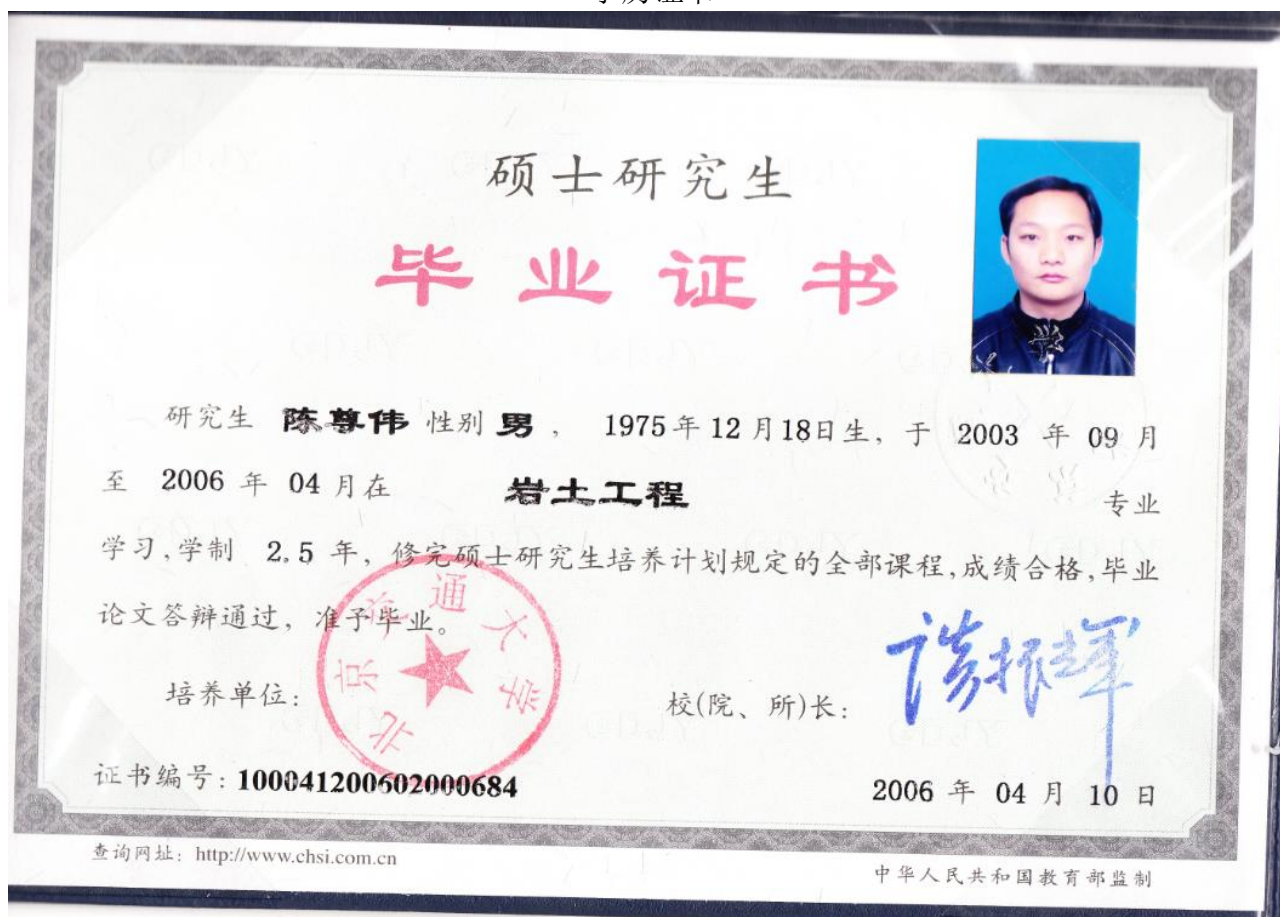 硕士研究生
毕业证书
研究生 陈尊伟 性别 男 , 1975年12月18日生, 于 2003 年 09 月
至 2006 年 04 月在 岩土工程 专业
学习,学制 2.5 年, 修完硕士研究生培养计划规定的全部课程,成绩合格,毕业
论文答辩通过, 准予毕业。
北京交通大学
培养单位: 校(院、所)长: 谈振辉
证书编号: 100041200602000684 2006 年 04 月 10 日
查询网址: http://www.chsi.com.cn 中华人民共和国教育部监制